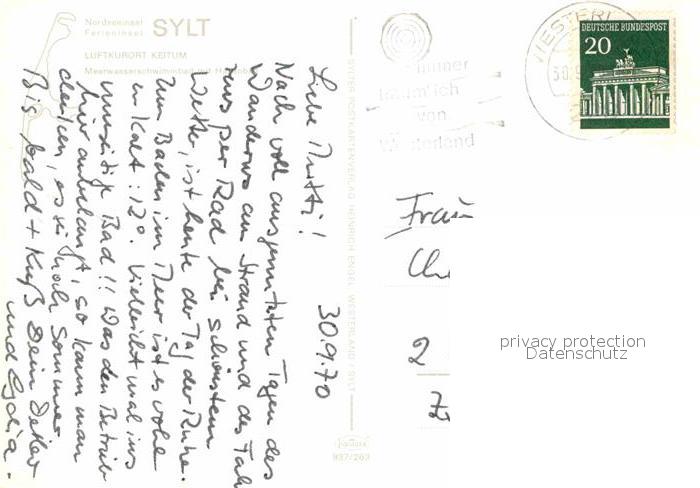 Nordseeinsel
Ferieninsel SYLT
LUFTKURORT KEITUM
Meerwasserschwimmbad mit
30.9.70
Liebe Mutti!
Nach voll ausgenutzten Tagen des
Wanderns am Strand und des Fah
rens per Rad bei schönstem
Wetter, ist heute der Tag der Ruhe.
Zum Baden im Meer ist es wohl
zu kalt: 12°. Vielleicht mal ins
Bad!! Was den Betrieb
hier anbelangt, so kann man
denken, es sei noch Sommer
Bis bald + Kuß Dein Detlev
und Lydia.
SYLTER POSTKARTENVERLAG HEINRICH ENGEL WESTERLAND / SYLT
937/263
Immer
von
Westerland
WESTERL
30.9
DEUTSCHE BUNDESPOST
20
Frau
2
privacy protection
Datenschutz